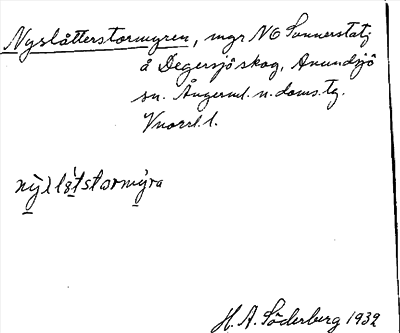 Nyslåtterstormyren, mgr NO Sunnerstatj
å Degersjö skog, Anundsjö
sn. Ångerml. n. doms. tg.
l.
nỳslåtstormy̆ra
H. A. Söderberg 1932